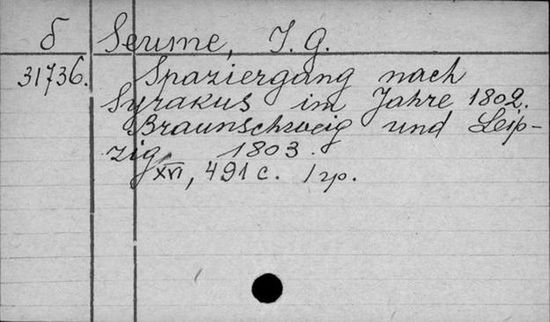 б Seume, J. G.
31736. Spaziergang nach
Syrakus im Jahre 1802.
Braunschweig und Leip-
zig 1803.
XVI, 491 с. 1 гр.